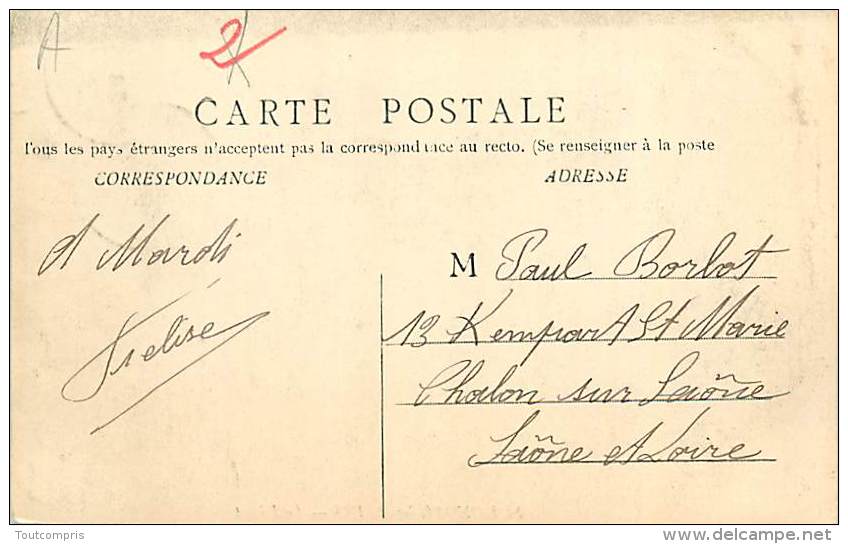 A
2
CARTE POSTALE
Tous les pays étrangers n'acceptent pas la correspondance au recto. (Se renseigner à la poste
CORRESPONDANCE
ADRESSE
A Mardi
M Paul Borbot
13 Rempart St Marie
Chalon sur Saône
Saône et Loire
Toutcompris
delcampe.net